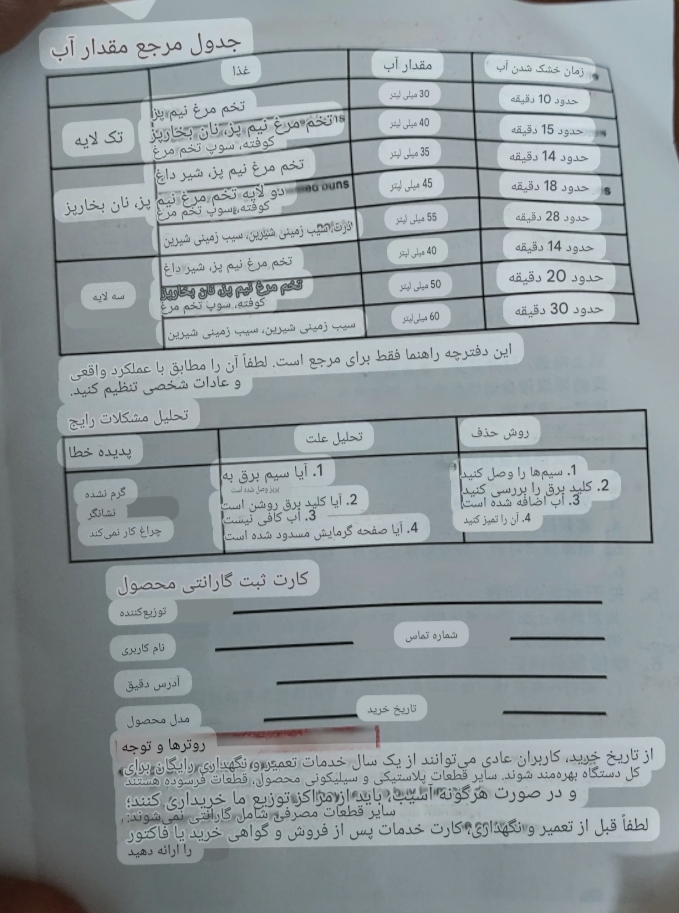 جدول مرجع مقدار آب
غذا مقدار آب زمان خشک شدن آب
تخم مرغ نیم پز 30 میلی لیتر حدود 10 دقیقه
تک لایه تخم مرغ نیم پز، نان بخارپز 40 میلی لیتر حدود 15 دقیقه
کوفته، سوپ تخم مرغ
تخم مرغ نیم پز، شیر داغ 35 میلی لیتر حدود 14 دقیقه
دو لایه تخم مرغ نیم پز، نان بخارپز 45 میلی لیتر حدود 18 دقیقه
کوفته، سوپ تخم مرغ
سیب زمینی شیرین، سیب زمینی شیرین 55 میلی لیتر حدود 28 دقیقه
تخم مرغ نیم پز، شیر داغ 40 میلی لیتر حدود 14 دقیقه
سه لایه تخم مرغ نیم پز، نان بخارپز 50 میلی لیتر حدود 20 دقیقه
کوفته، سوپ تخم مرغ
سیب زمینی شیرین، سیب زمینی شیرین 60 میلی لیتر حدود 30 دقیقه
این دفترچه راهنما فقط برای مرجع است. لطفاً آن را مطابق با عملکرد واقعی
و عادات شخصی تنظیم کنید.
تحلیل مشکلات رایج
پدیده خطا تحلیل علت روش حذف
گرم نشده
نشانگر
چراغ کار نمی‌کند
1. آیا سیم برق به
پریز وصل شده است
2. آیا کلید برق روشن است
3. آب کافی نیست
4. آیا صفحه گرمایش مسدود شده است
1. سیم‌ها را وصل کنید
2. کلید برق را بررسی کنید
3. آب اضافه شده است
4. آن را تمیز کنید
کارت ثبت گارانتی محصول
توزیع‌کننده
نام کاربری شماره تماس
آدرس دقیق
مدل محصول تاریخ خرید
روترها و توجه
از تاریخ خرید، کاربران عادی می‌توانند از یک سال خدمات تعمیر و نگهداری رایگان برای
کل دستگاه بهره‌مند شوند. سایر قطعات پلاستیکی و سیلیکونی محصول، قطعات فرسوده هستند
و در صورت هرگونه آسیب، باید از مراکز توزیع ما خریداری کنند؛
سایر قطعات مصرفی شامل گارانتی نمی‌شوند؛
لطفاً قبل از تعمیر و نگهداری، کارت خدمات پس از فروش و گواهی خرید یا فاکتور
را ارائه دهید